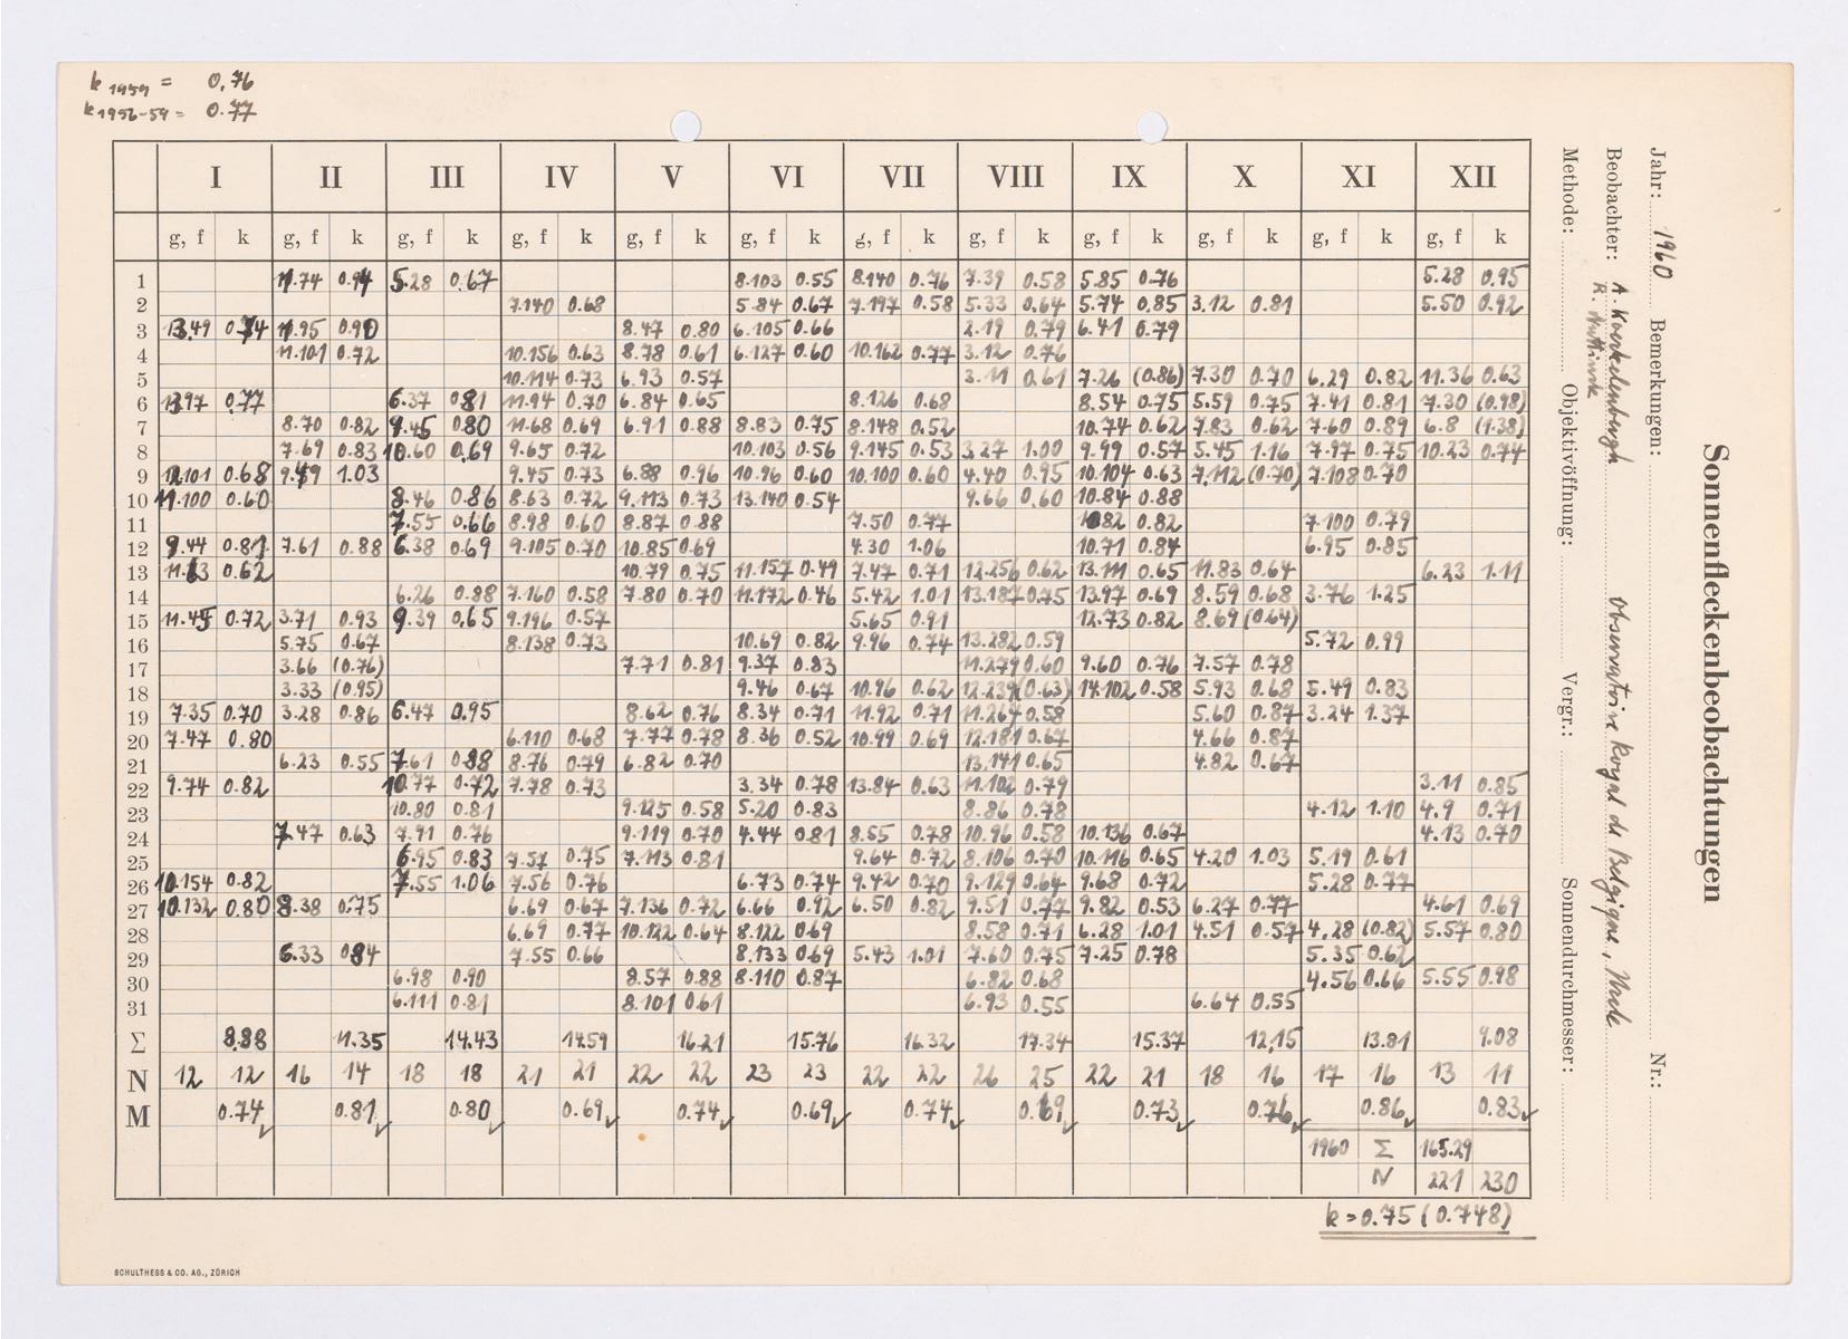 k 1959 = 0,76
k 1956-59 = 0.77
I II III IV V VI VII VIII IX X XI XII
g, f k g, f k g, f k g, f k g, f k g, f k g, f k g, f k g, f k g, f k g, f k g, f k
1 11.74 0.94 5.28 0.67 8.103 0.55 8.140 0.76 7.39 0.58 5.85 0.76 5.28 0.95
2 7.140 0.68 5.84 0.67 7.197 0.58 5.33 0.64 5.74 0.85 3.12 0.81 5.50 0.92
3 13.49 0.74 11.95 0.90 8.47 0.80 6.105 0.66 2.19 0.79 6.41 0.79
4 11.101 0.72 10.156 0.63 8.78 0.61 6.127 0.60 10.162 0.77 3.12 0.76
5 10.114 0.73 6.93 0.57 3.11 0.61 7.26 (0.86) 7.30 0.70 6.29 0.82 11.36 0.63
6 0.77 6.37 0.81 11.94 0.70 6.84 0.65 8.126 0.68 8.54 0.75 5.59 0.75 7.41 0.81 7.30 (0.98)
7 8.70 0.82 9.45 0.80 11.68 0.69 6.91 0.88 8.83 0.75 8.148 0.52 10.74 0.62 7.83 0.62 7.60 0.89 6.8 (1.38)
8 7.69 0.83 10.60 0.69 9.65 0.72 10.103 0.56 9.145 0.53 3.27 1.00 9.99 0.57 5.45 1.16 7.97 0.75 10.23 0.74
9 12.101 0.68 9.49 1.03 9.45 0.73 6.88 0.96 10.96 0.60 10.100 0.60 4.40 0.95 10.104 0.63 7.112 (0.70) 7.108 0.70
10 11.100 0.60 8.46 0.86 8.63 0.72 9.113 0.73 13.140 0.54 9.66 0.60 10.84 0.88
11 7.55 0.66 8.98 0.60 8.87 0.88 7.50 0.77 0.82 7.100 0.79
12 9.44 0.81 7.61 0.88 6.38 0.69 9.105 0.70 10.85 0.69 4.30 1.06 10.71 0.84 6.95 0.85
13 11.63 0.62 10.79 0.75 11.157 0.49 7.47 0.71 12.256 0.62 13.111 0.65 11.83 0.64 6.23 1.11
14 6.26 0.88 7.160 0.58 7.80 0.70 11.172 0.46 5.42 1.01 13.187 0.75 13.97 0.69 8.59 0.68 3.76 1.25
15 11.45 0.72 3.71 0.93 9.39 0.65 9.196 0.57 5.65 0.91 12.73 0.82 8.69 (0.64)
16 5.75 0.67 8.138 0.73 10.69 0.82 9.96 0.74 13.282 0.59 5.72 0.99
17 3.66 (0.76) 7.71 0.81 9.37 0.83 11.279 0.60 9.60 0.76 7.57 0.78
18 3.33 (0.95) 9.46 0.67 10.96 0.62 12.239 (0.63) 14.102 0.58 5.93 0.68 5.49 0.83
19 7.35 0.70 3.28 0.86 6.47 0.95 8.62 0.76 8.34 0.71 11.92 0.71 11.267 0.58 5.60 0.87 3.24 1.37
20 7.47 0.80 6.110 0.68 7.77 0.78 8.36 0.52 10.99 0.69 12.181 0.67 4.66 0.87
21 6.23 0.55 7.61 0.88 8.76 0.79 6.82 0.70 13.141 0.65 4.82 0.67
22 9.74 0.82 10.77 0.72 7.78 0.73 3.34 0.78 13.84 0.63 11.102 0.79 3.11 0.85
23 10.80 0.81 9.125 0.58 5.20 0.83 8.86 0.78 4.12 1.10 4.9 0.71
24 7.47 0.63 7.91 0.76 9.119 0.70 4.44 0.81 8.55 0.78 10.96 0.58 10.136 0.67 4.13 0.70
25 6.95 0.83 7.57 0.75 7.113 0.81 9.64 0.72 8.106 0.70 10.116 0.65 4.20 1.03 5.19 0.61
26 10.154 0.82 7.55 1.06 7.56 0.76 6.73 0.74 9.42 0.70 9.129 0.64 9.68 0.72 5.28 0.77
27 10.132 0.80 8.38 0.75 6.69 0.67 7.136 0.72 6.66 0.92 6.50 0.82 9.51 0.77 9.82 0.53 6.27 0.77 4.61 0.69
28 6.69 0.77 10.122 0.64 8.122 0.69 8.58 0.71 6.28 1.01 4.51 0.57 4.28 (0.82) 5.57 0.80
29 6.33 0.84 7.55 0.66 8.133 0.69 5.43 1.01 7.60 0.75 7.25 0.78 5.35 0.62
30 6.98 0.90 8.57 0.88 8.110 0.87 6.82 0.68 4.56 0.66 5.55 0.98
31 6.111 0.81 8.101 0.61 6.93 0.55 6.64 0.55
Σ 8.88 11.35 14.43 14.59 16.21 15.76 16.32 17.34 15.37 12,15 13.81 9.08
N 12 12 16 14 18 18 21 21 22 22 23 23 22 22 26 25 22 21 18 16 17 16 13 11
M 0.74 0.81 0.80 0.69 0.74 0.69 0.74 0.69 0.73 0.76 0.86 0.83
1960 Σ 165.29
N 221 230
k = 0.75 (0.748)
SCHULTHESS & CO. AG., ZÜRICH
Sonnenfleckenbeobachtungen
Jahr: 1960 Bemerkungen: Nr.:
Beobachter: A. Koeckelenbergh Observatoire Royal de Belgique, Uccle
R.
Methode: Objektivöffnung: Vergr.: Sonnendurchmesser: